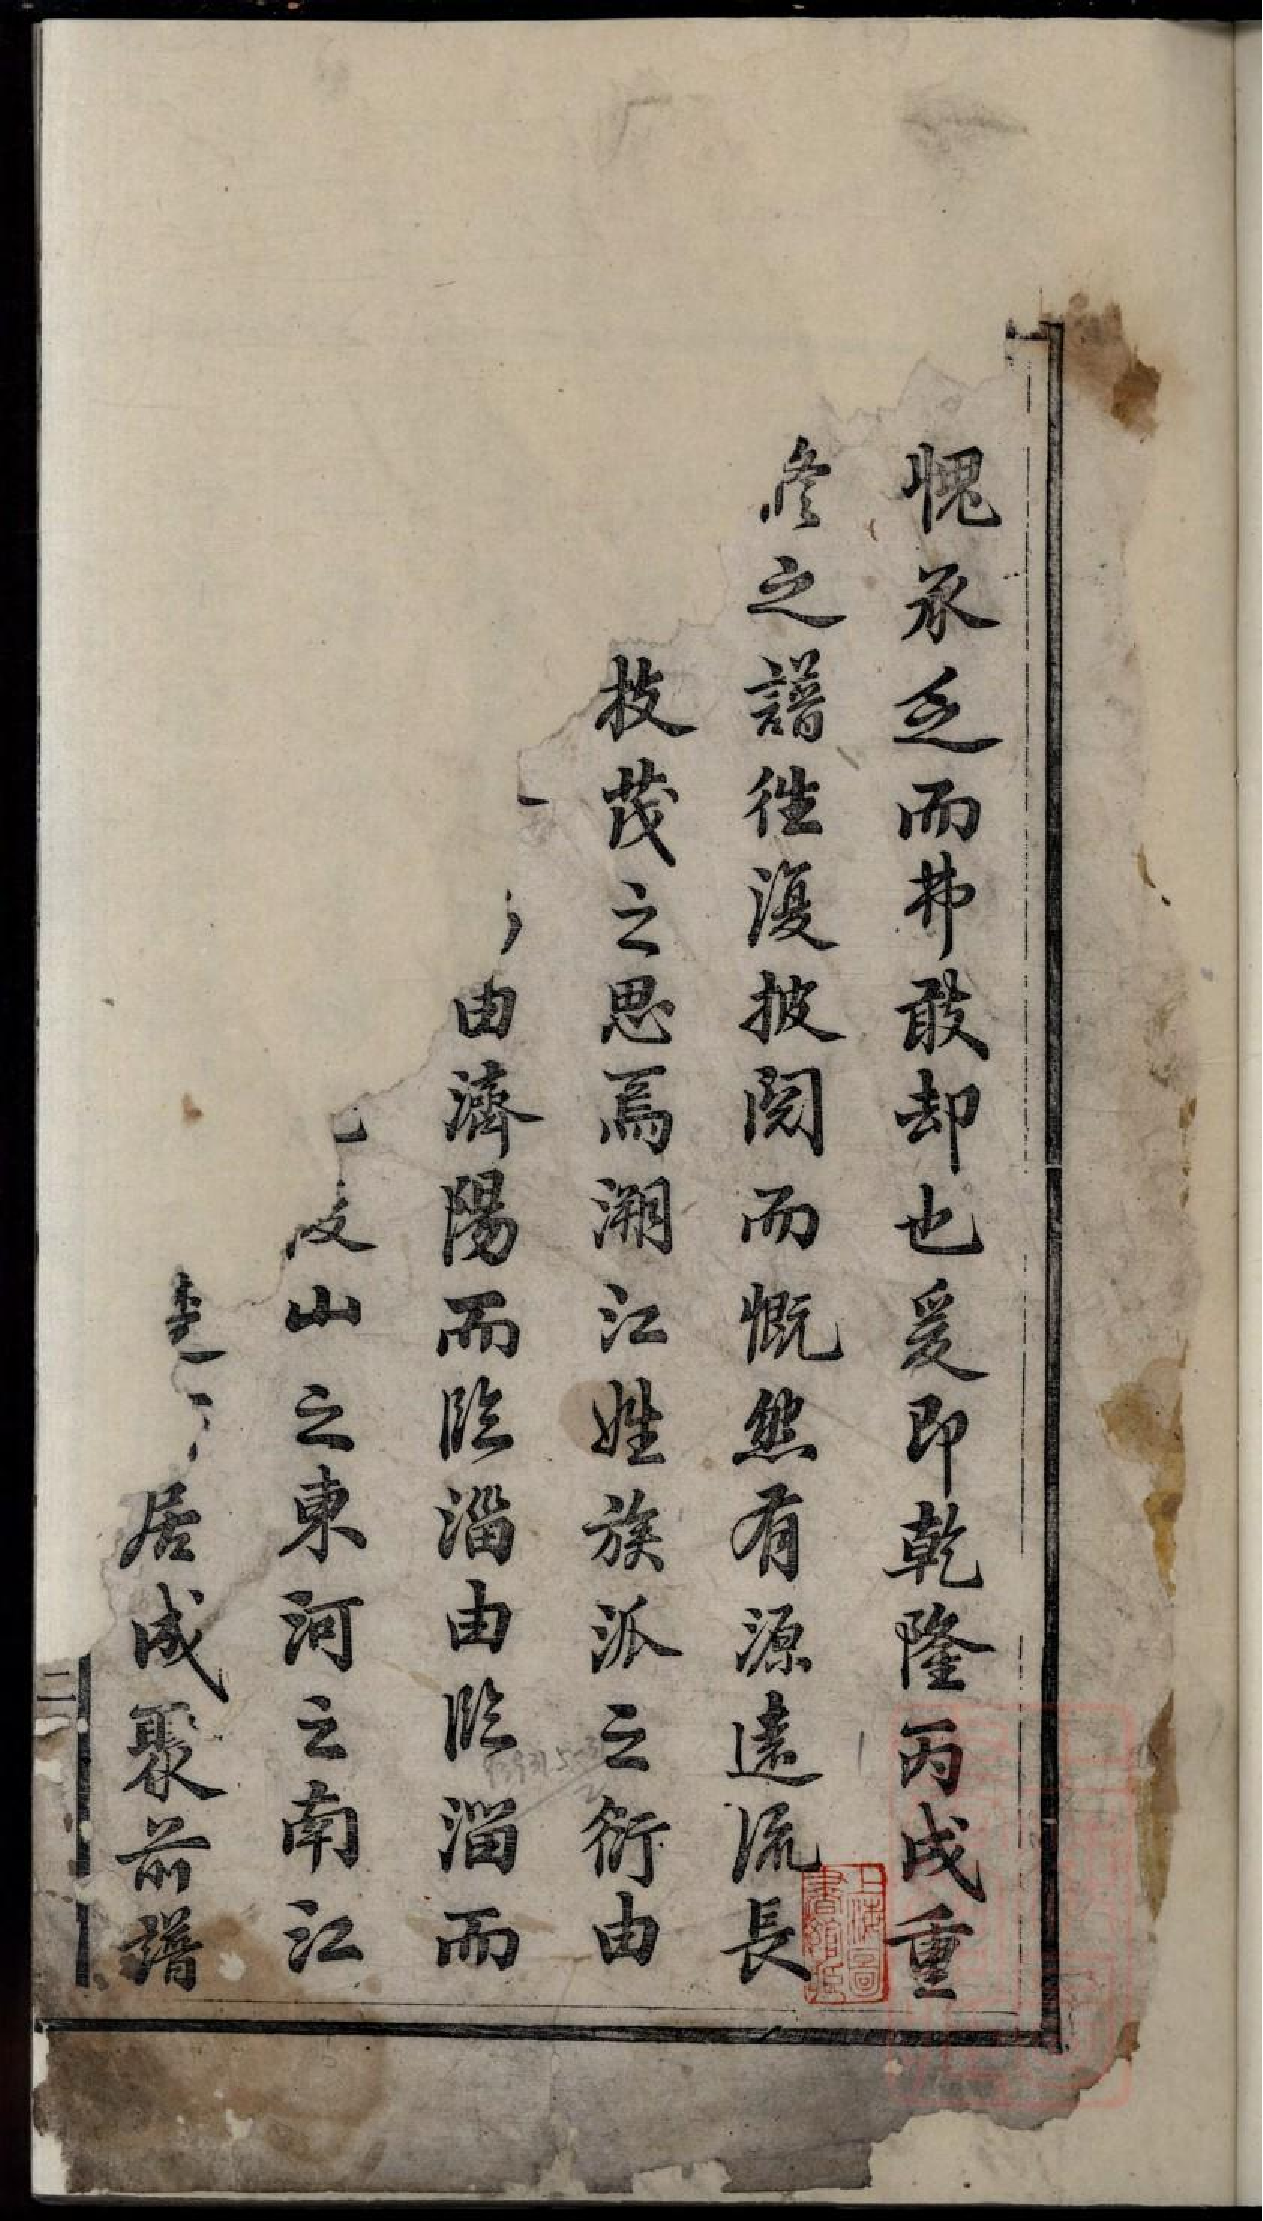 愧承乏而弗敢却也爰即乾隆丙戌重
修之譜徃復披閱而慨然有源遠流長
枝茂之思焉溯江姓族派之衍由
由濟陽而臨淄由臨淄而
山之東河之南江
居成聚前譜
二
上海圖書館藏